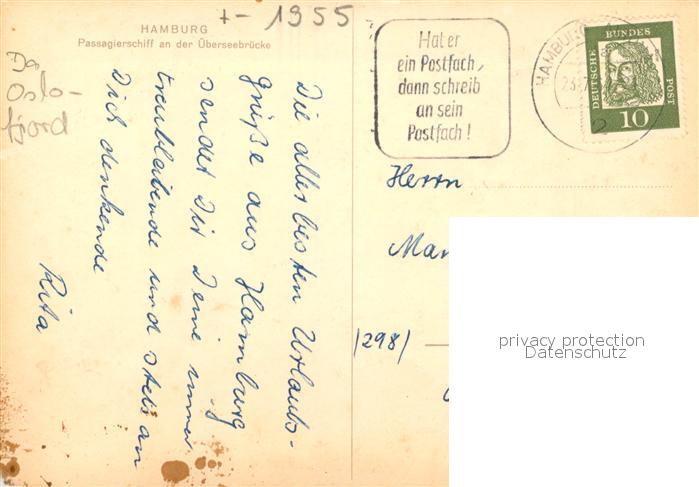 +- 1955
HAMBURG
Passagierschiff an der Überseebrücke
Oslo-
fjord
Die allerbesten Urlaubs-
grüße aus Hamburg
sendet Dir Deine immer
treubleibende und stets an
Dich denkende
Rita
Hat er
ein Postfach,
dann schreib
an sein
Postfach!
HAMBURG
DEUTSCHE BUNDES POST
10
Herrn
(298)
privacy protection
Datenschutz